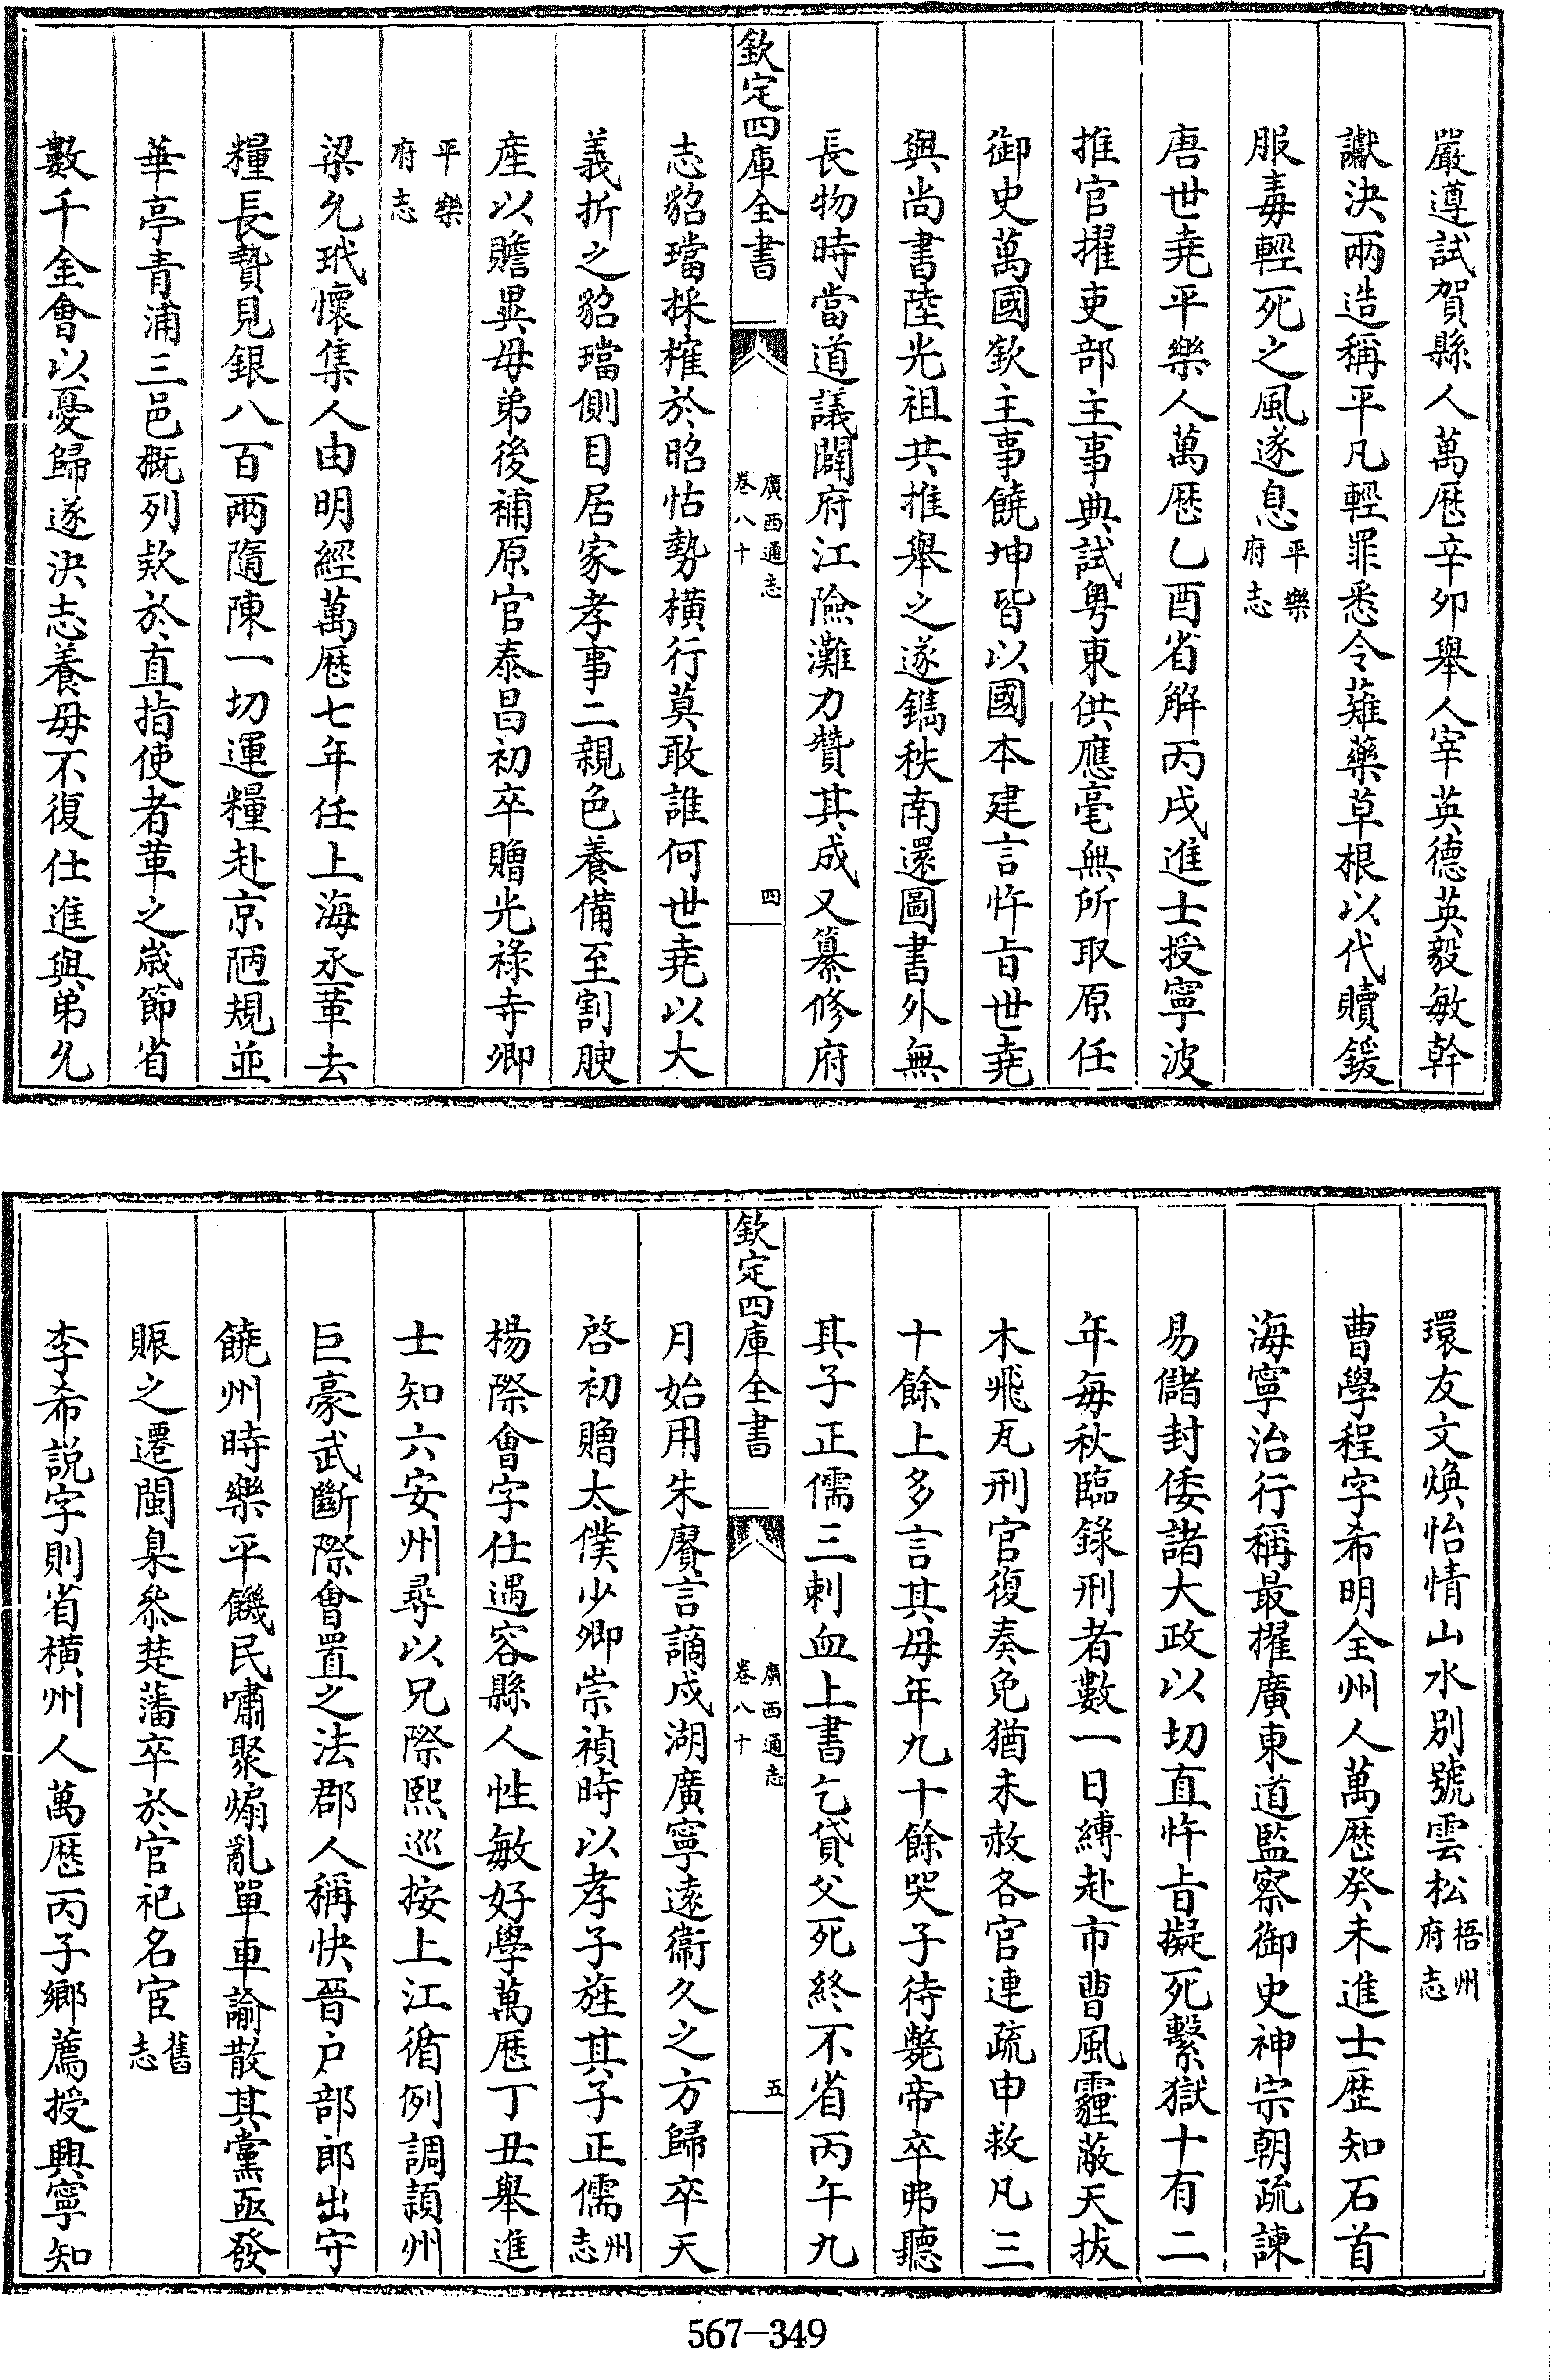 嚴遵試賀縣人萬厯辛卯舉人宰英德英毅敏幹
讞決兩造稱平凡輕罪悉令薙藥草根以代贖鍰
服毒輕死之風遂息平樂府志
唐世堯平樂人萬厯乙酉省解丙戌進士授寧波
推官擢吏部主事典試粵東供應毫無所取原任
御史萬國欽主事饒坤皆以國本建言忤旨世堯
與尚書陸光祖共推舉之遂鐫秩南還圖書外無
長物時當道議闢府江險灘力贊其成又纂修府
欽定四庫全書
廣西通志
卷八十
四
志貂璫採榷於昭怙勢橫行莫敢誰何世堯以大
義折之貂璫側目居家孝事二親色養備至割腴
產以贍異母弟後補原官泰昌初卒贈光祿寺卿
平樂府志
梁允玳懷集人由明經萬厯七年任上海丞革去
糧長贄見銀八百兩隨陳一切運糧赴京陋規並
華亭青浦三邑概列欵於直指使者革之歲節省
數千金會以憂歸遂決志養母不復仕進與弟允
環友文煥怡情山水別號雲松梧州府志
曹學程字希明全州人萬厯癸未進士歴知石首
海寧治行稱最擢廣東道監察御史神宗朝疏諫
易儲封倭諸大政以切直忤旨擬死繫獄十有二
年每秋臨錄刑者數一日縛赴市曹風霾蔽天拔
木飛瓦刑官復奏免猶未赦各官連疏申救凡三
十餘上多言其母年九十餘哭子待斃帝卒弗聽
其子正儒三刺血上書乞貸父死終不省丙午九
欽定四庫全書
廣西通志
卷八十
五
月始用朱賡言謫戍湖廣寧遠衞久之方歸卒天
啓初贈太僕少卿崇禎時以孝子旌其子正儒州志
楊際會字仕遇容縣人性敏好學萬厯丁丑舉進
士知六安州尋以兄際熙巡按上江循例調潁州
巨豪武斷際會置之法郡人稱快晉户部郎出守
饒州時樂平饑民嘯聚煽亂單車諭散其黨亟發
賑之遷閩臬叅楚藩卒於官祀名宦舊志
李希説字則省橫州人萬厯丙子鄉薦授興寧知
567-349